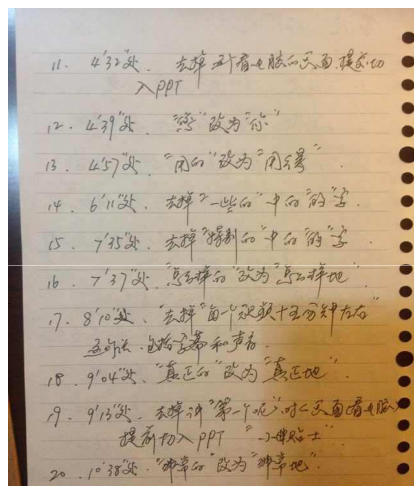 11. 4'32"处. 去掉 看电脑的页面,提前切
入PPT
12. 4'39"处. "您"改为"你"
13. 4'57"处. "用的"改为"用得".
14. 6'11"处. 去掉"一些的"中的"的"字.
15. 7'35"处. 去掉"特别的"中的"的"字.
16. 7'37"处. "怎么样的"改为"怎么样地".
17. 8'10"处. 去掉"每一个视频十五分钟左右"
这句话.包括字幕和声音.
18. 9'04"处. "真正的"改为"真正地".
19. 9'13"处. 去掉讲"第一个呢"时(页面看电脑)
提前切入PPT "小贴士".
20. 10'38"处. "非常的"改为"非常地".